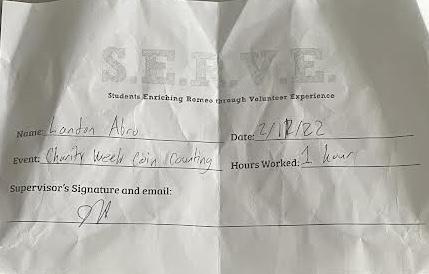 S.E.R.V.E.
Students Enriching Romeo through Volunteer Experience
Name: Landon Abro Date: 2/12/22
Event: Charity Week Coin Counting Hours Worked: 1 hour
Supervisor's Signature and email: